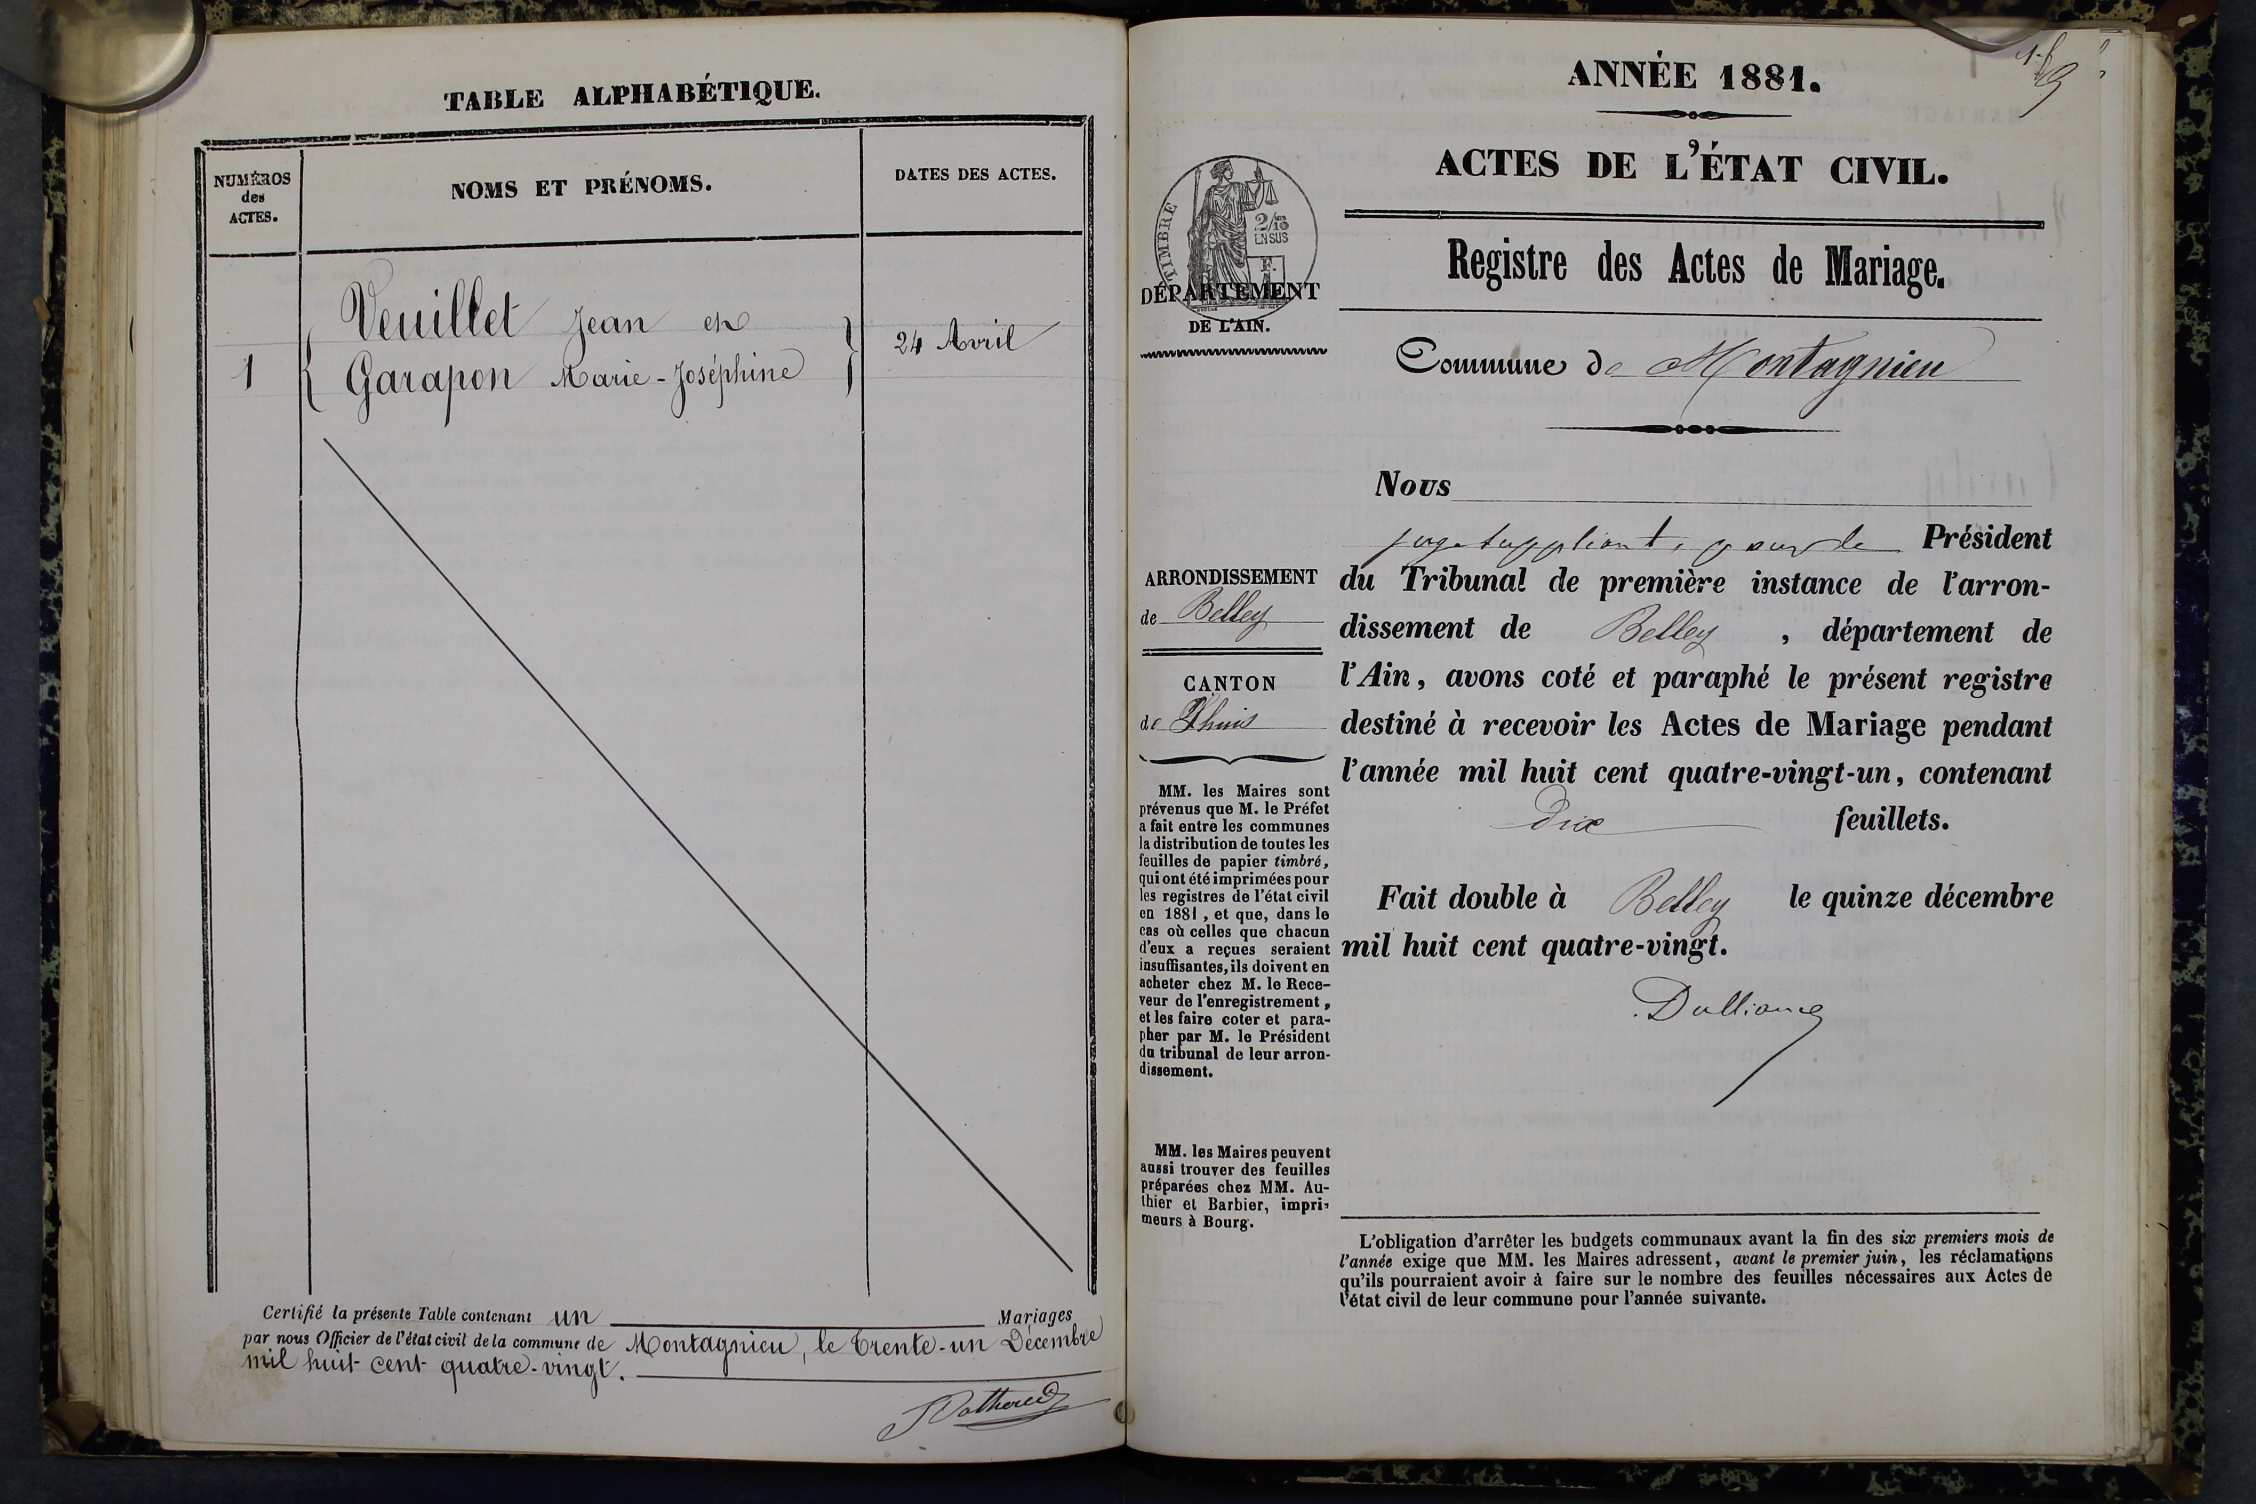 TABLE ALPHABÉTIQUE.
NUMÉROS
des
ACTES.
NOMS ET PRÉNOMS.
DATES DES ACTES.
Veuillet Jean et
1
24 Avril
Garapon Marie-Joséphine
Certifié la présente Table contenant un Mariages
par nous Officier de l'état civil de la commune de Montagnieu, le trente-un Décembre
mil huit cent quatre-vingt.
ANNÉE 1881.
ACTES DE L'ÉTAT CIVIL.
TIMBRE
2/10
EN SUS
DÉPARTEMENT
DE L'AIN.
Registre des Actes de Mariage.
Commune de Montagnieu
ARRONDISSEMENT
de Belley
CANTON
de Lhuis
MM. les Maires sont
prévenus que M. le Préfet
a fait entre les communes
la distribution de toutes les
feuilles de papier timbré,
qui ont été imprimées pour
les registres de l'état civil
en 1881, et que, dans le
cas où celles que chacun
d'eux a reçues seraient
insuffisantes, ils doivent en
acheter chez M. le Rece-
veur de l'enregistrement,
et les faire coter et para-
pher par M. le Président
du tribunal de leur arron-
dissement.
MM. les Maires peuvent
aussi trouver des feuilles
préparées chez MM. Au-
thier et Barbier, impri-
meurs à Bourg.
Nous
juge suppléant, pour le Président
du Tribunal de première instance de l'arron-
dissement de Belley, département de
l'Ain, avons coté et paraphé le présent registre
destiné à recevoir les Actes de Mariage pendant
l'année mil huit cent quatre-vingt-un, contenant
dix feuillets.
Fait double à Belley le quinze décembre
mil huit cent quatre-vingt.
L'obligation d'arrêter les budgets communaux avant la fin des six premiers mois de
l'année exige que MM. les Maires adressent, avant le premier juin, les réclamations
qu'ils pourraient avoir à faire sur le nombre des feuilles nécessaires aux Actes de
l'état civil de leur commune pour l'année suivante.